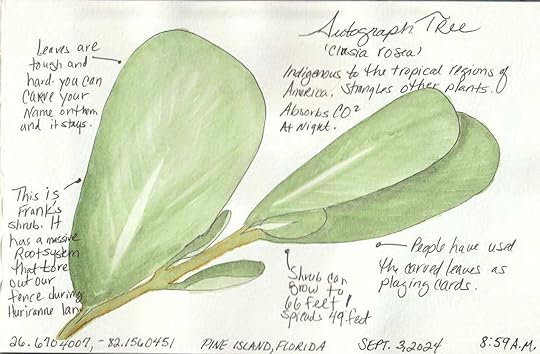 Autograph Tree
(Clusia rosea)
Indigenous to the tropical regions of
America. Strangles other plants.
Absorbs CO2
At Night.
Leaves are
tough and
hard. you can
CARVE your
Name on them
and it stays.
This is
Frank's
shrub. It
has a massive
Root system
that tore
out our
fence during
Hurricane Ian
Shrub can
Grow to
66 feet!
Spreads 49 feet
People have used
the carved leaves as
playing cards.
26.6704007, -82.1560451 PINE ISLAND, FLORIDA SEPT. 3, 2024 8:59 A.M.